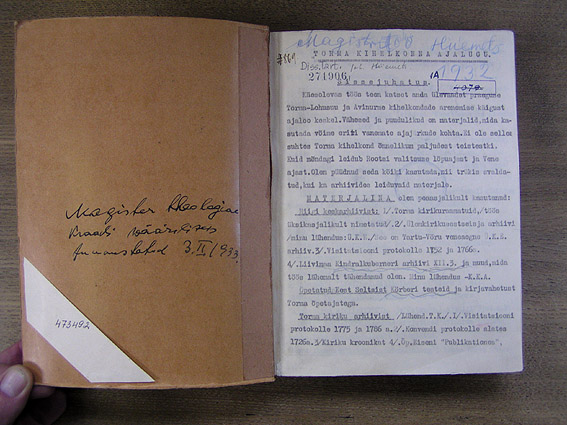 Magister theologiae
kraadi vääriliseks
tunnustatud 3.II 1933.
473492
Magistritöö
TORMA KIHELKONNA AJALUGU.
Diss. lart.
271906
A
1932
Sissejuhatus.
Käesolevas töös teen katset anda ülevaadet praeguse
Torma-Lohusuu ja Avinurme kihelkondade arenemise käigust
ajaloo keskel. Vähesed ja puudulikud on materjalid, mida ka-
sutada võime eriti vanemate ajajärkude kohta. Ei ole selles
suhtes Torma kihelkond õnnelikum paljudest teistestki.
Kuid mõndagi leidub Rootsi valitsuse lõpuajast ja Vene
ajast. Olen püüdnud seda kõiki kasutada, nii trükis avalda-
tud, kui ka arhiivides leiduvaid materjale.
MATERJALINA olen peaasjalikult kasutanud:
Riigi keskarhiivist 1/. Torma kirikuraamatuid, /töös
üksikasjalikult nimetatud/. 2/. Ülemkirikueestseisja arhiivi
/minu lühendus: Ü.K.E./ See on Tartu-Võru vemaaegne .K.E.
arhiiv. 3/. Visitatsiooni protokolle 1752 ja 1766a.
4/. Liivimaa Kindralkuberneri arhiivi XII.3. ja muud, mida
töös lühemalt tähendanud olen. Minu lühendus -K.K.A.
Õpetatud Eest Seltsist Körberi teateid ja kirjavahetust
Torma õpetajatega.
Torma kiriku arhiivist /Lühend. T.K./, 1/. Visitatsiooni
protokolle 1775 ja 1786 a. 2/. Konvendi protokolle alates
1726a. 3/Kiriku kroonikat 4/. Õp. Eiseni "Publikatsioon",